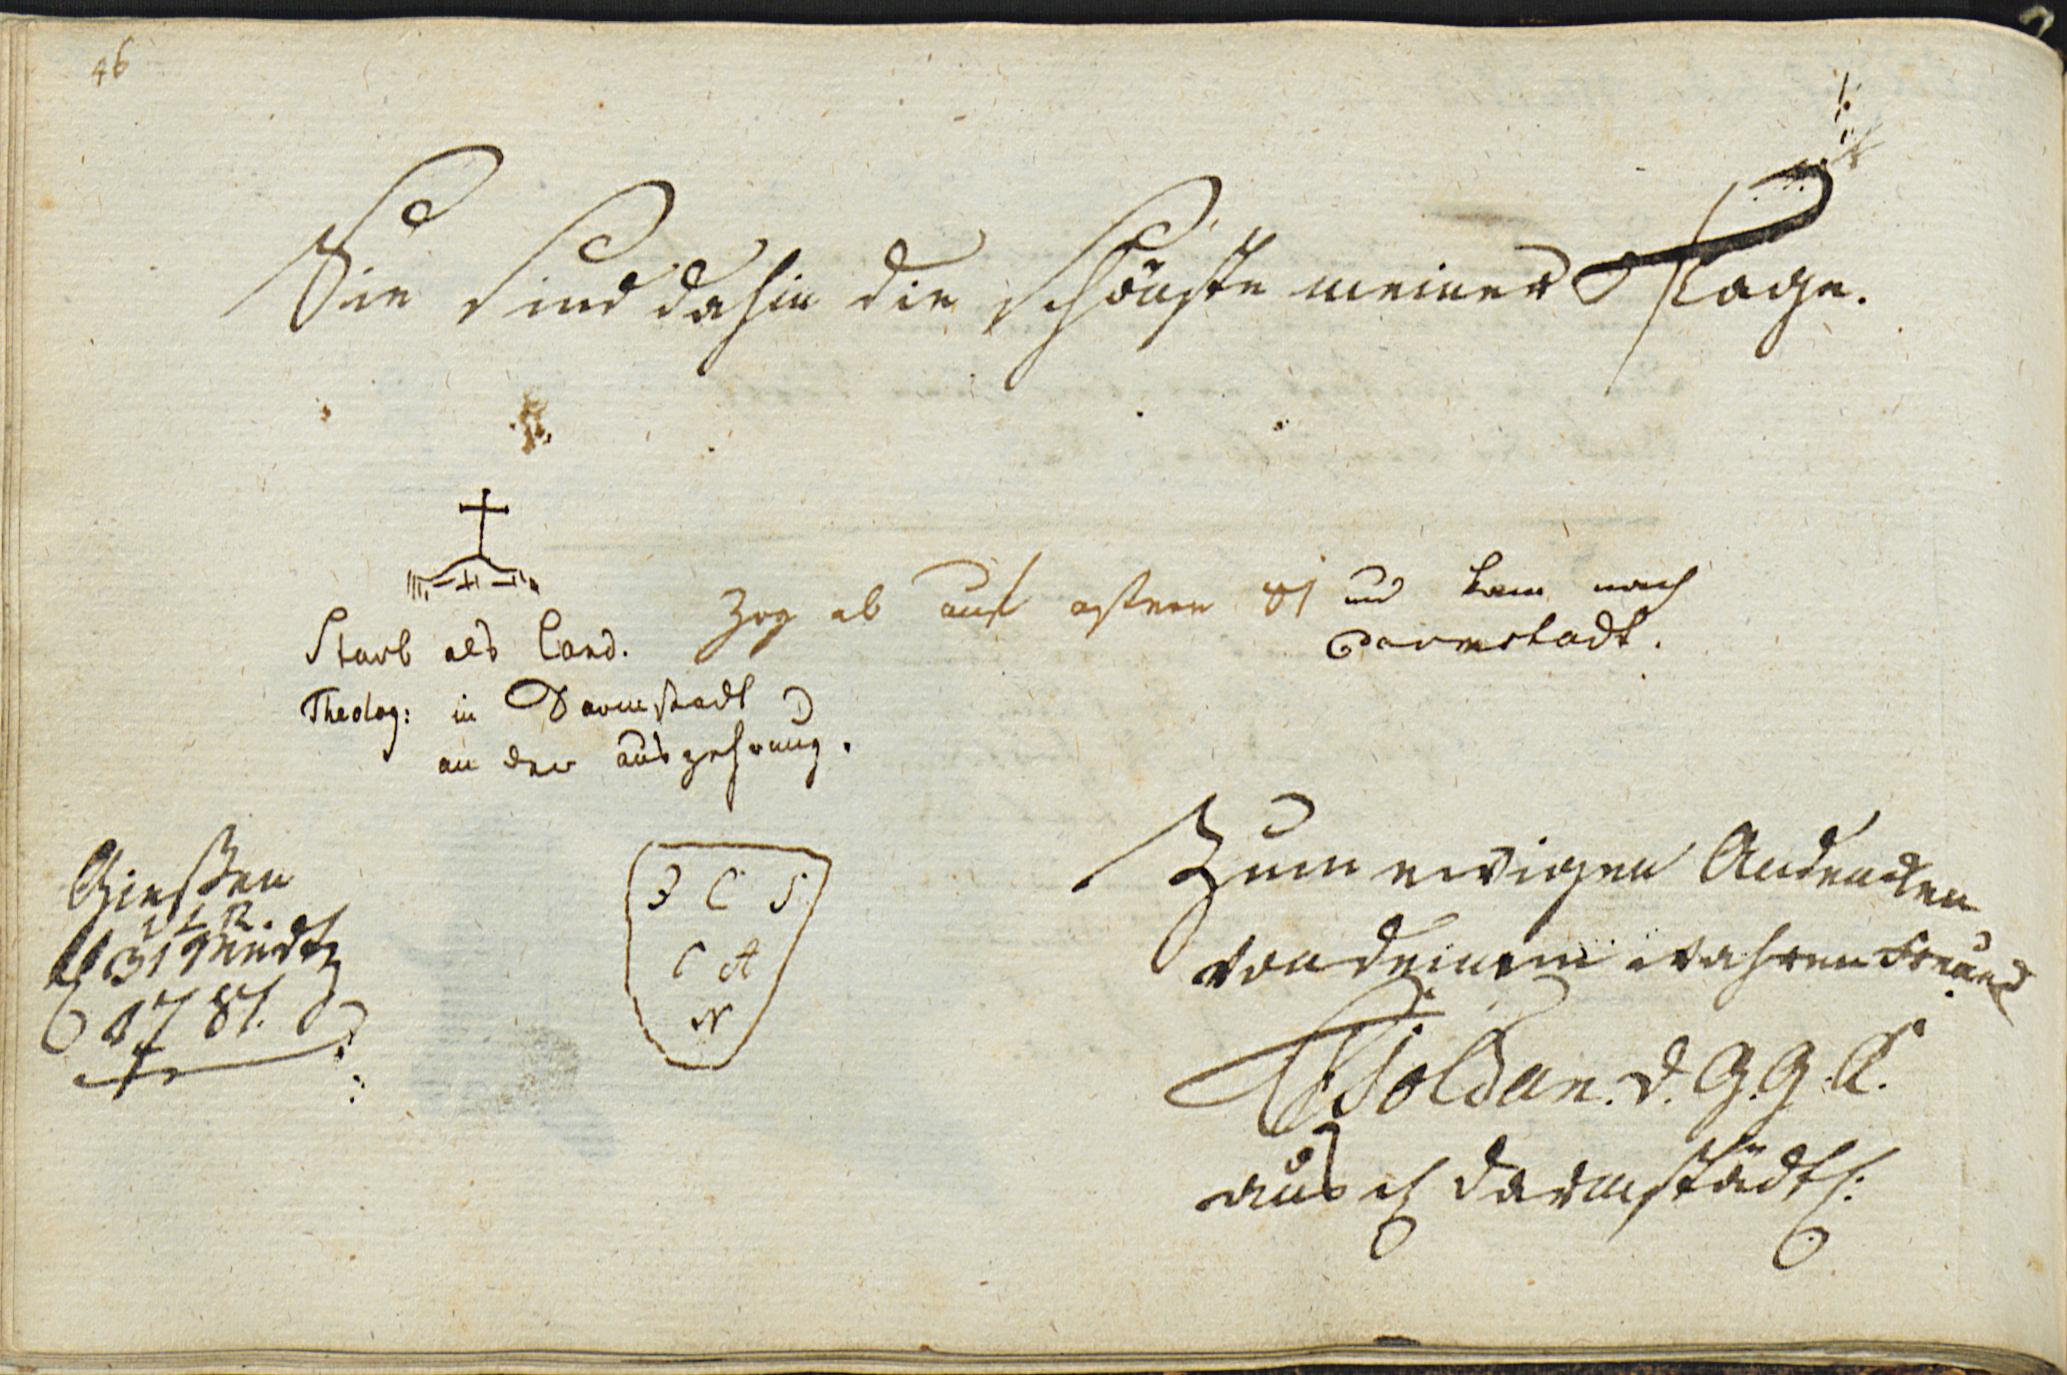 46
Sie sind dahin die schönste meiner Tage.
Zog ab auf ostern 81 und kam nach
Darmstadt.
Starb als Cand.
Theolog: in Darmstadt
an der auszehrung.
Giessen
d 31 Mertz
1781.
J C S
C A
N
Zum ewigen Andencken
von deinem wahren Freund
Soldan. d. G. G. B.
aus Darmstadt